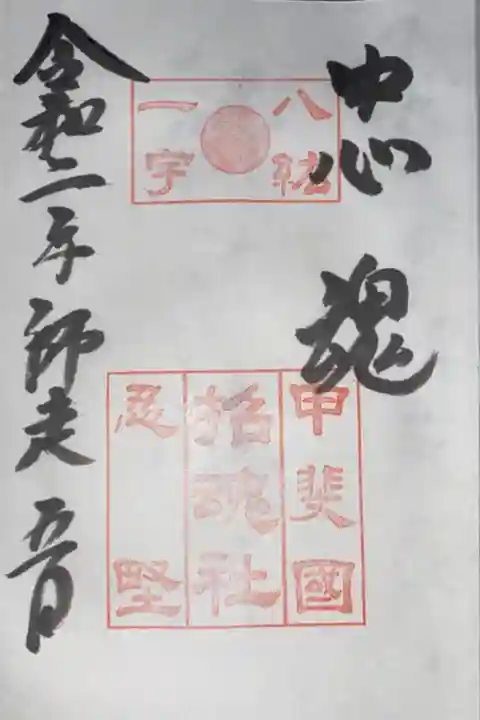 忠魂
八紘
一宇
甲斐國
招魂社
忍堅
令和二年師走五日